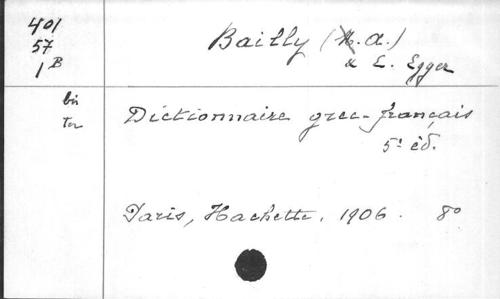 401
57
1 B
Bailly (M. A.)
& E. Egger
bis
ter
Dictionnaire grec-français
5e éd.
Paris, Hachette, 1906. 8o